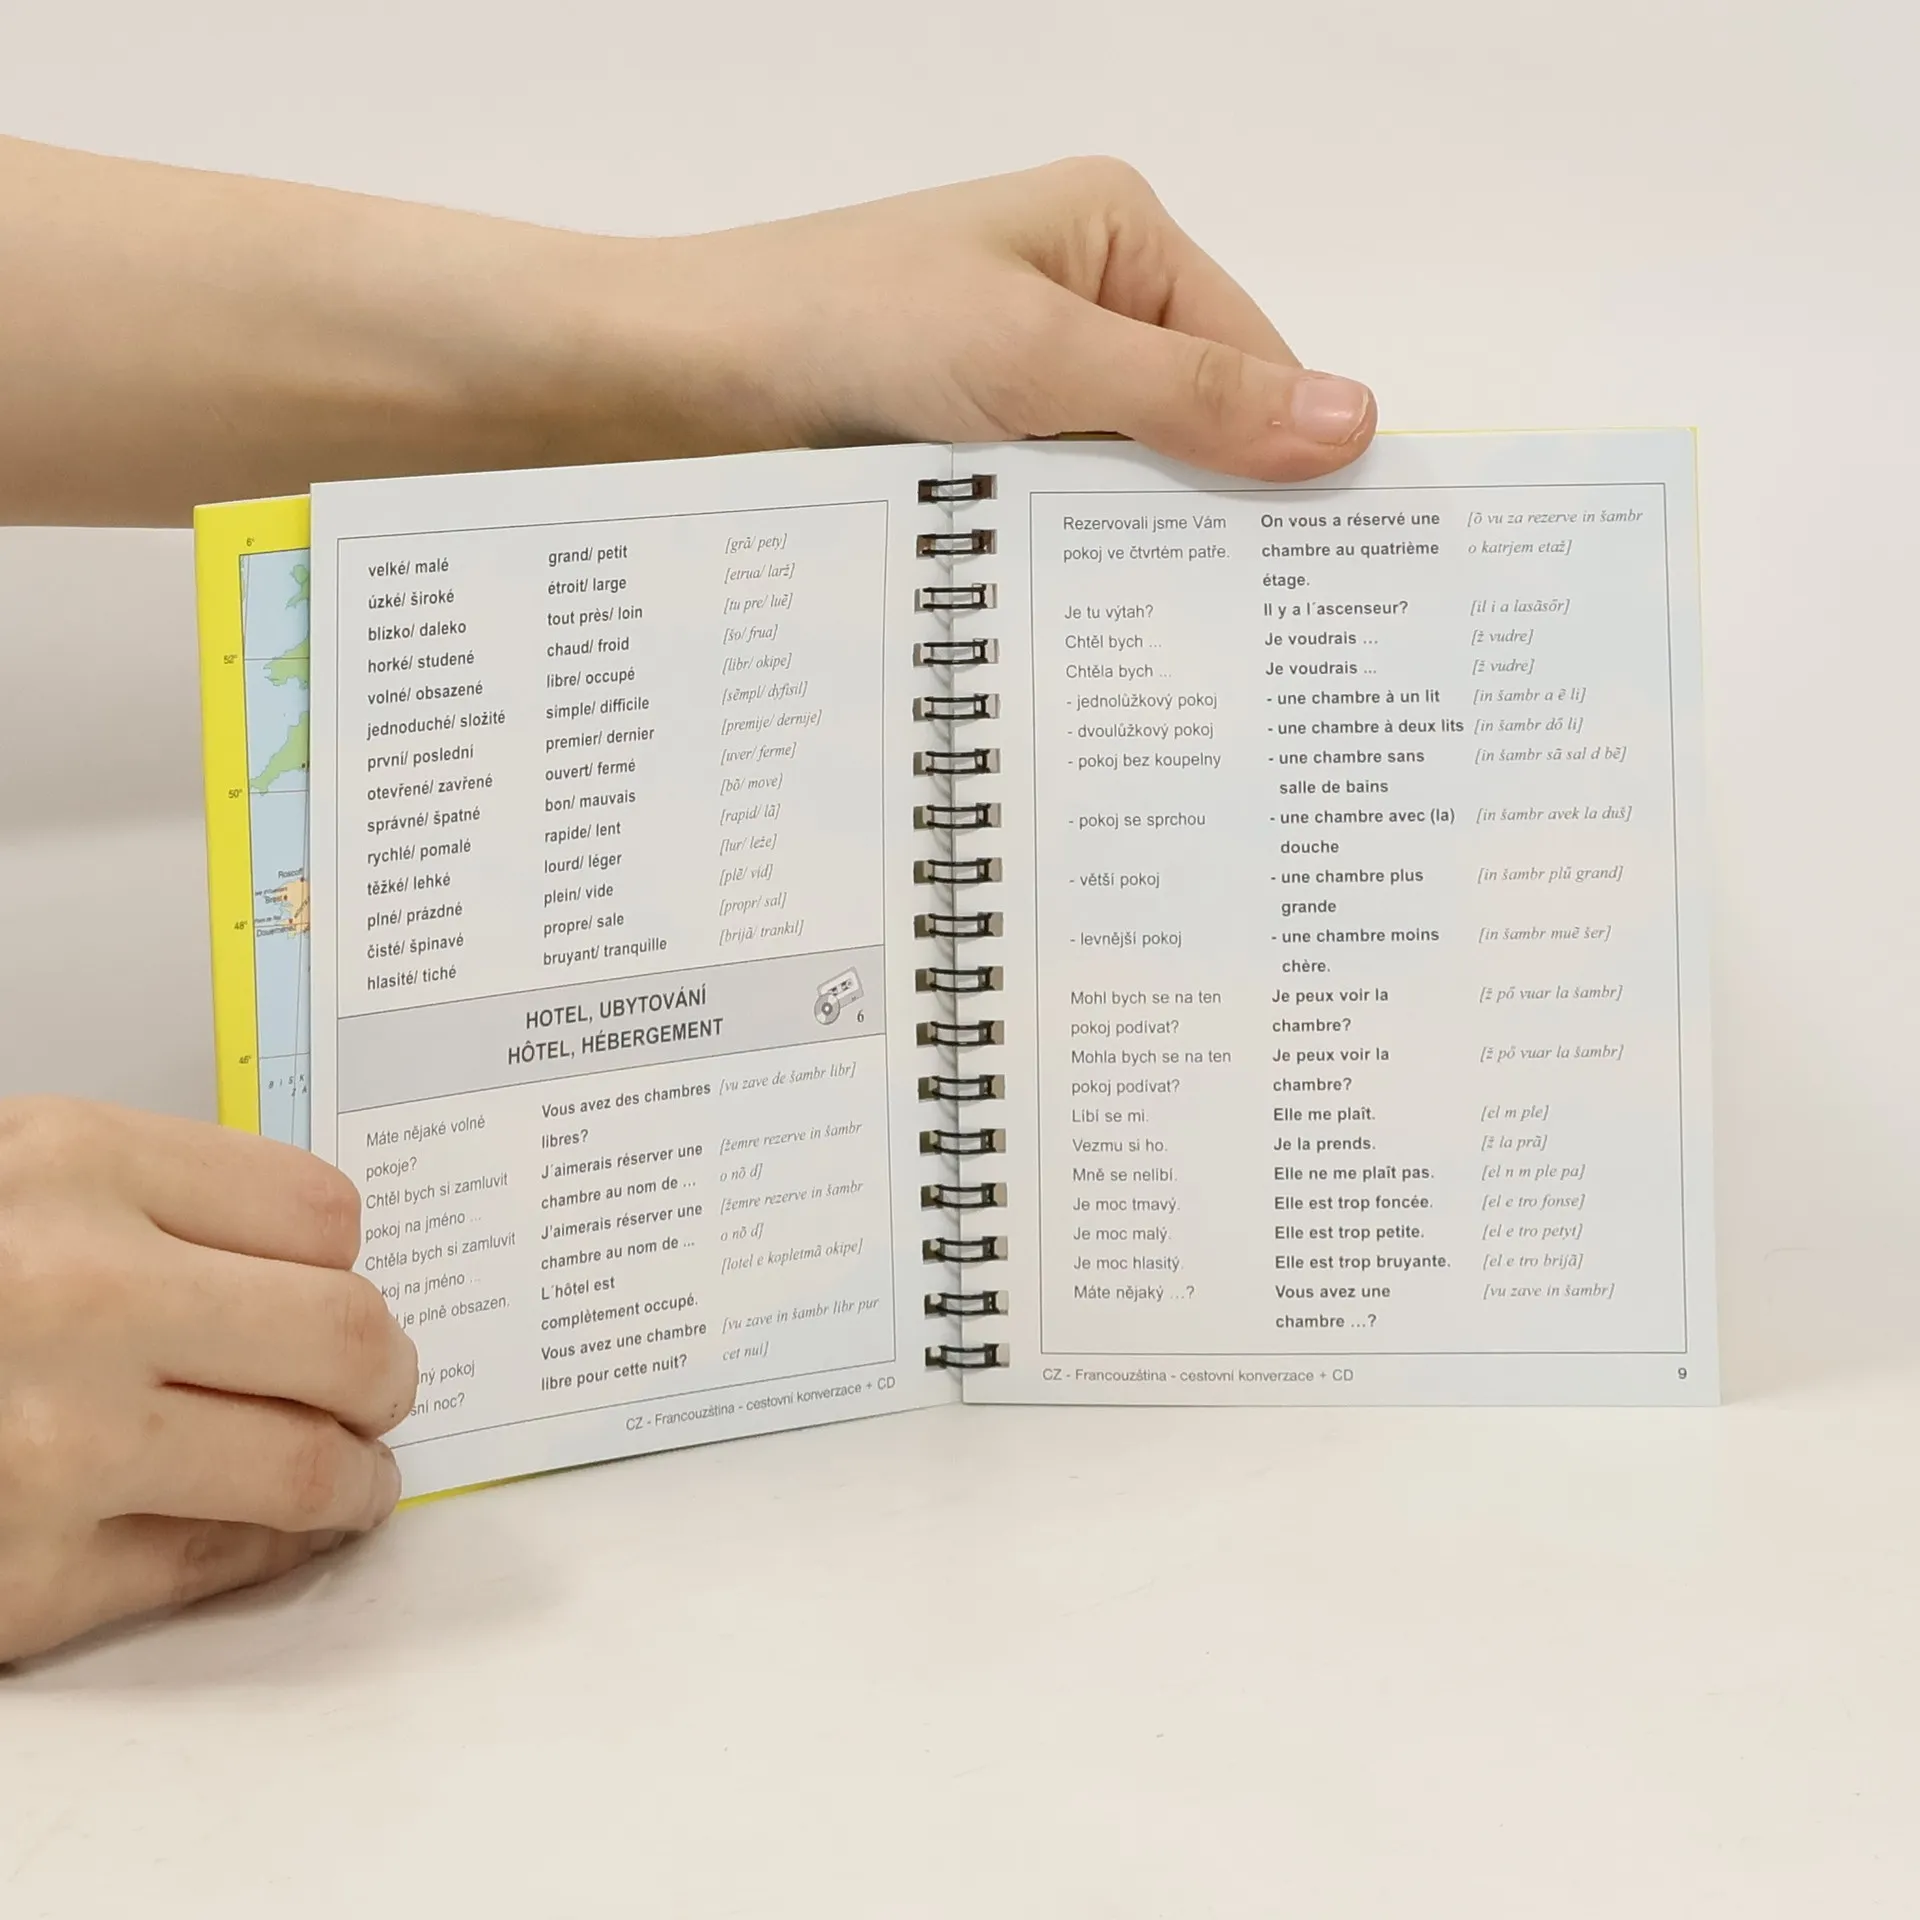 velké/ malé grand/ petit [grã/ pety]
úzké/ široké étroit/ large [etrua/ larž]
blízko/ daleko tout près/ loin [tu pre/ luẽ]
horké/ studené chaud/ froid [šo/ frua]
volné/ obsazené libre/ occupé [libr/ okipe]
jednoduché/ složité simple/ difficile [sẽmpl/ dyfisil]
první/ poslední premier/ dernier [premije/ dernije]
otevřené/ zavřené ouvert/ fermé [uver/ ferme]
správné/ špatné bon/ mauvais [bõ/ move]
rychlé/ pomalé rapide/ lent [rapid/ lã]
těžké/ lehké lourd/ léger [lur/ leže]
plné/ prázdné plein/ vide [plẽ/ vid]
čisté/ špinavé propre/ sale [propr/ sal]
hlasité/ tiché bruyant/ tranquille [brijã/ trankil]
HOTEL, UBYTOVÁNÍ
HÔTEL, HÉBERGEMENT
6
Máte nějaké volné Vous avez des chambres [vu zave de šambr libr]
pokoje? libres?
Chtěl bych si zamluvit J´aimerais réserver une [žemre rezerve in šambr
pokoj na jméno ... chambre au nom de ... o nõ d]
Chtěla bych si zamluvit J'aimerais réserver une [žemre rezerve in šambr
koj na jméno ... chambre au nom de ... o nõ d]
je plně obsazen. L´hôtel est [lotel e kopletmã okipe]
complètement occupé.
ný pokoj Vous avez une chambre [vu zave in šambr libr pur
sní noc? libre pour cette nuit? cet nui]
CZ - Francouzština - cestovní konverzace + CD
Rezervovali jsme Vám On vous a réservé une [õ vu za rezerve in šambr
pokoj ve čtvrtém patře. chambre au quatrième o katrjem etaž]
étage.
Je tu výtah? Il y a l´ascenseur? [il i a lasãsõr]
Chtěl bych ... Je voudrais ... [ž vudre]
Chtěla bych ... Je voudrais ... [ž vudre]
- jednolůžkový pokoj - une chambre à un lit [in šambr a ẽ li]
- dvoulůžkový pokoj - une chambre à deux lits [in šambr dő li]
- pokoj bez koupelny - une chambre sans [in šambr sã sal d bẽ]
salle de bains
- pokoj se sprchou - une chambre avec (la) [in šambr avek la duš]
douche
- větší pokoj - une chambre plus [in šambr plű grand]
grande
- levnější pokoj - une chambre moins [in šambr muẽ šer]
chère.
Mohl bych se na ten Je peux voir la [ž pő vuar la šambr]
pokoj podívat? chambre?
Mohla bych se na ten Je peux voir la [ž pő vuar la šambr]
pokoj podívat? chambre?
Líbí se mi. Elle me plaît. [el m ple]
Vezmu si ho. Je la prends. [ž la prã]
Mně se nelíbí. Elle ne me plaît pas. [el n m ple pa]
Je moc tmavý. Elle est trop foncée. [el e tro fonse]
Je moc malý. Elle est trop petite. [el e tro petyt]
Je moc hlasitý. Elle est trop bruyante. [el e tro brijã]
Máte nějaký ...? Vous avez une [vu zave in šambr]
chambre ...?
CZ - Francouzština - cestovní konverzace + CD 9
6°
52°
50°
Roscoff
Brest
48°
46°
B I S K
Z A